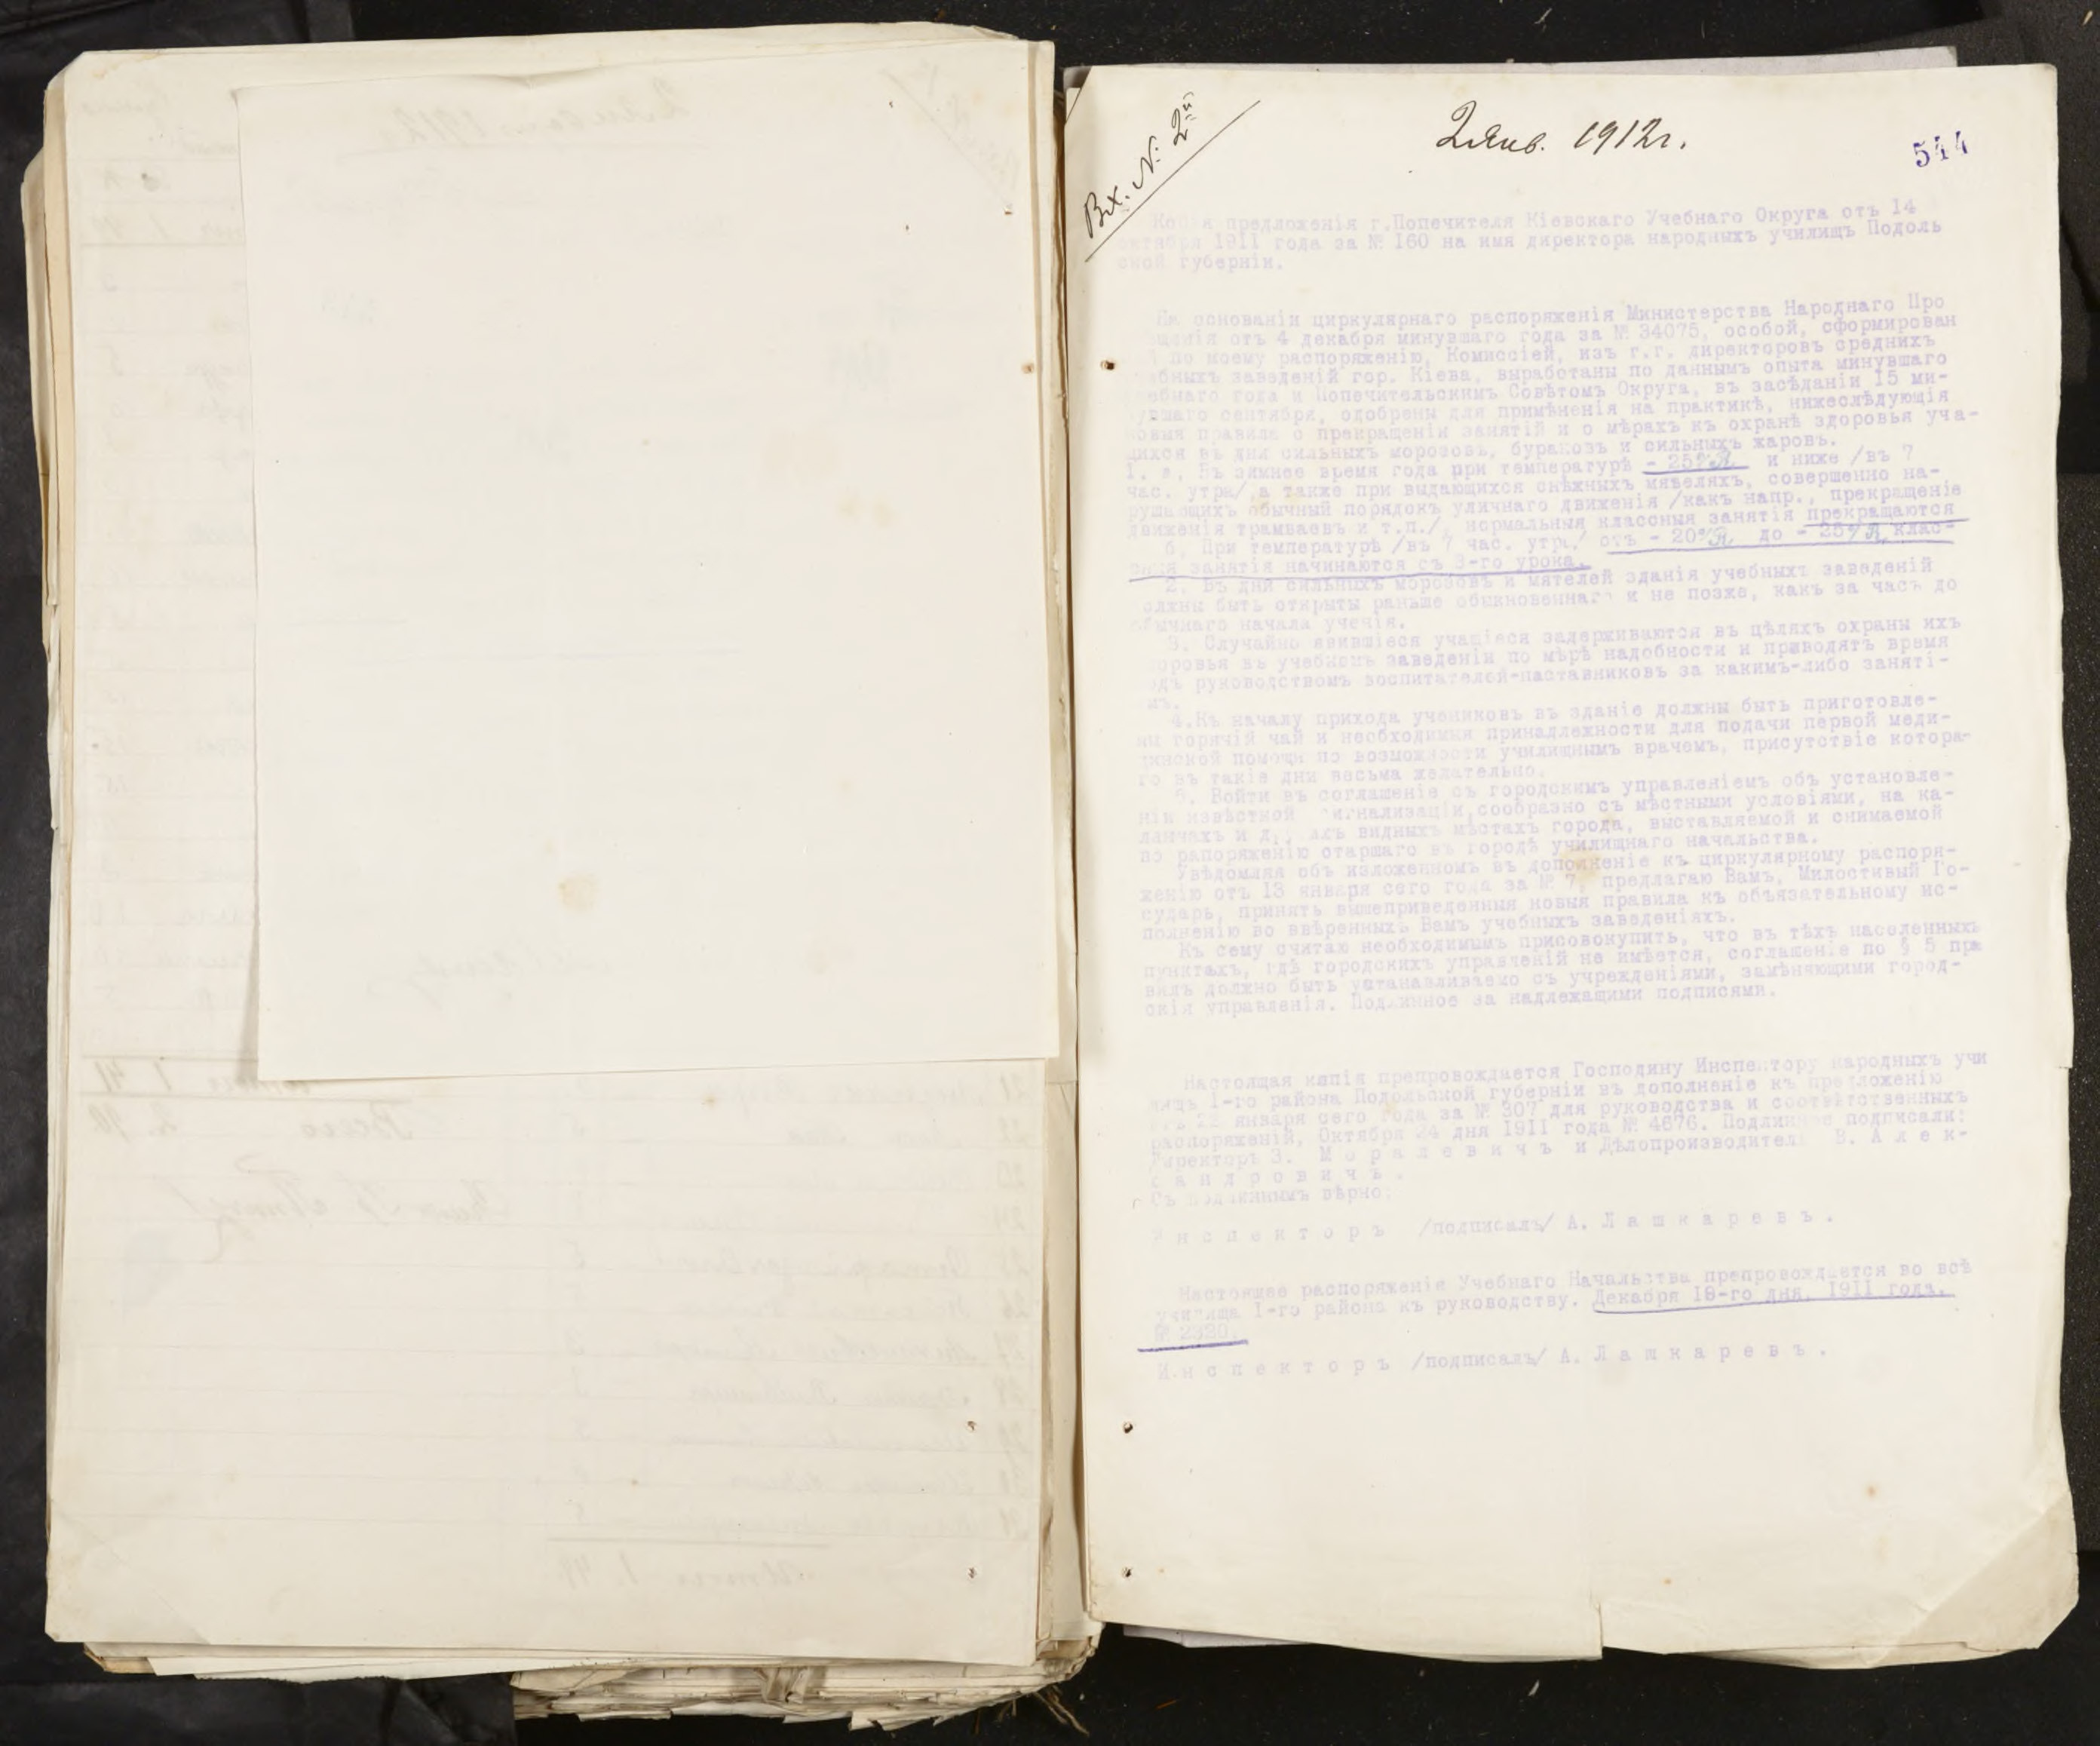 Вх. № 2й
2 Янв. 1912 г.
544
Копія предложенія г.Попечителя Кіевскаго Учебнаго Округа отъ 14
октября 1911 года за № 160 на имя директора народныхъ училищъ Подоль
ской губерніи.
На основаніи циркулярнаго распоряженія Министерства Народнаго Про
щенія отъ 4 декабря минувшаго года за № 34075, особой, сформирован
по моему распоряженію, Комиссіей, изъ г.г. директоровъ среднихъ
учебныхъ заведеній гор. Кіева, выработаны по даннымъ опыта минувшаго
учебнаго года и Попечительскимъ Совѣтомъ Округа, въ засѣданіи 15 ми-
нувшаго сентября, одобрены для примѣненія на практикѣ, нижеслѣдующія
новыя правила о прекращеніи занятій и о мѣрахъ къ охранѣ здоровья уча-
щихся въ дни сильныхъ морозовъ, бурановъ и сильныхъ жаровъ.
1. а, Въ зимнее время года при температурѣ - 25°R. и ниже /въ 7
час. утра/,а также при выдающихся снѣжныхъ мятеляхъ, совершенно на-
рушающихъ обычный порядокъ уличнаго движенія /какъ напр., прекращеніе
движенія трамваевъ и т.п./, нормальныя классныя занятія прекращаются
б, При температурѣ /въ 7 час. утра/ отъ - 20°R. до - 25°R. клас-
сныя занятія начинаются съ 3-го урока.
2. Въ дни сильныхъ морозовъ и мятелей зданія учебныхъ заведеній
должны быть открыты раньше обыкновеннаго и не позже, какъ за часъ до
обычнаго начала ученія.
3. Случайно явившіеся учащіеся задерживаются въ цѣляхъ охраны ихъ
здоровья въ учебномъ заведеніи по мѣрѣ надобности и приводятъ время
подъ руководствомъ воспитателей-наставниковъ за какимъ-либо заняті-
емъ.
4.Къ началу прихода учениковъ въ зданіе должны быть приготовле-
ны горячій чай и необходимыя принадлежности для подачи первой меди-
цинской помощи по возможности училищнымъ врачемъ, присутствіе котора-
го въ такіе дни весьма желательно.
5. Войти въ соглашеніе съ городскимъ управленіемъ объ установле-
ніи извѣстной сигнализаціи,сообразно съ мѣстными условіями, на ка-
ланчахъ и др.  видныхъ мѣстахъ города, выставляемой и снимаемой
по рапоряженію старшаго въ городѣ училищнаго начальства.
Увѣдомляя объ изложенномъ въ дополненіе къ циркулярному распоря-
женію отъ 13 января сего года за № 7, предлагаю Вамъ, Милостивый Го-
сударь, принять вышеприведенныя новыя правила къ объязательному ис-
полненію во ввѣренныхъ Вамъ учебныхъ заведеніяхъ.
Къ сему считаю необходимымъ присовокупить, что въ тѣхъ населенныхъ
пунктахъ, гдѣ городскихъ управленій не имѣется, соглашеніе по § 5 пра
вилъ должно быть устанавливаемо съ учрежденіями, замѣняющими город-
скія управленія. Подлинное за надлежащими подписями.
Настоящая копія препровождается Господину Инспектору народныхъ учи
лищъ 1-го района Подольской губерніи въ дополненіе къ предложенію
отъ 22 января сего года за № 307 для руководства и соотвѣтственныхъ
распоряженій, Октября 24 дня 1911 года № 4676. Подлинное подписали:
Директоръ З. М о р а л е в и ч ъ и Дѣлопроизводитель В. А л е к-
с а н д р о в и ч ъ .
Съ подлиннымъ вѣрно:
И н с п е к т о р ъ /подписалъ/ А. Л а ш к а р е в ъ .
Настоящее распоряженіе Учебнаго Начальства препровождается во всѣ
училища 1-го района къ руководству. Декабря 19-го дня, 1911 года,
№ 2320.
И н с п е к т о р ъ /подписалъ/ А. Л а ш к а р е в ъ .